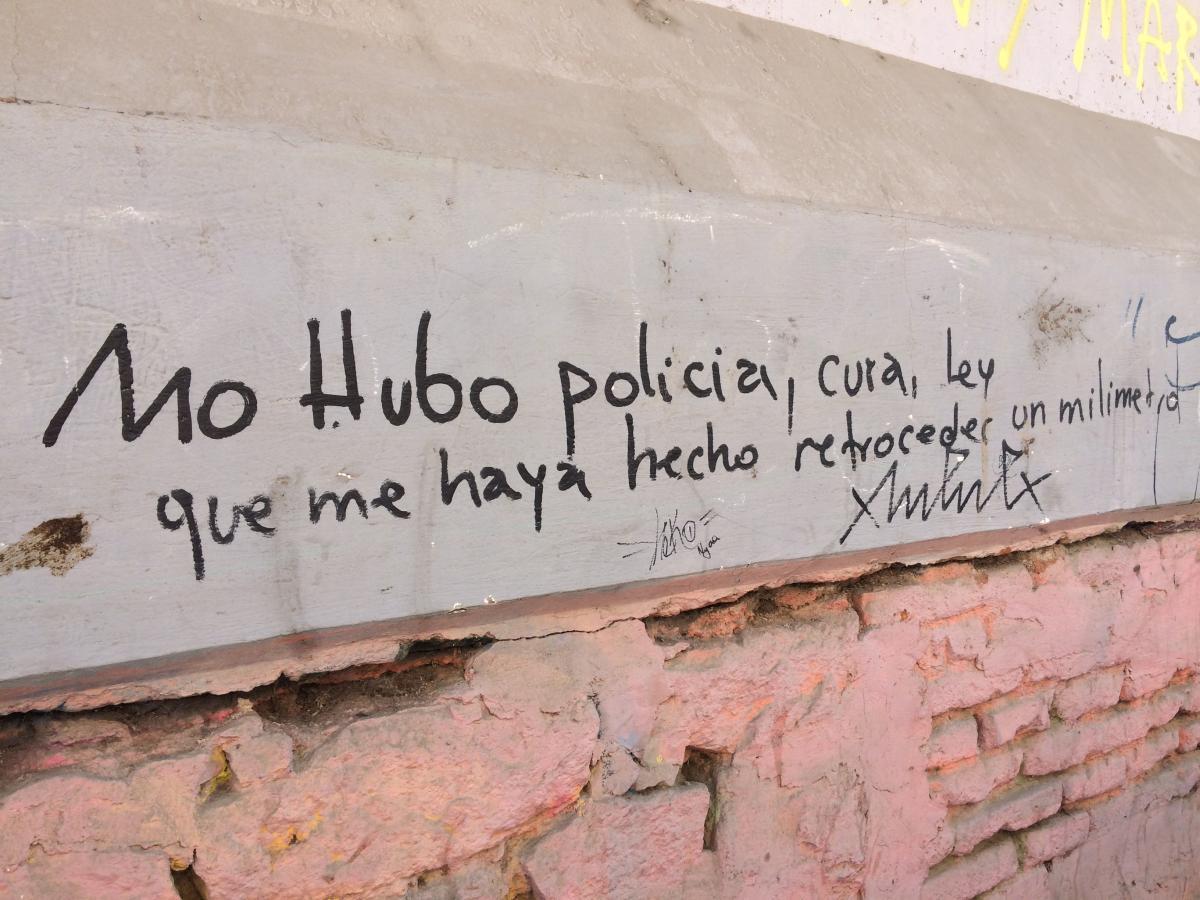 MAR
No Hubo policia, cura, ley
que me haya hecho retroceder un milimetro